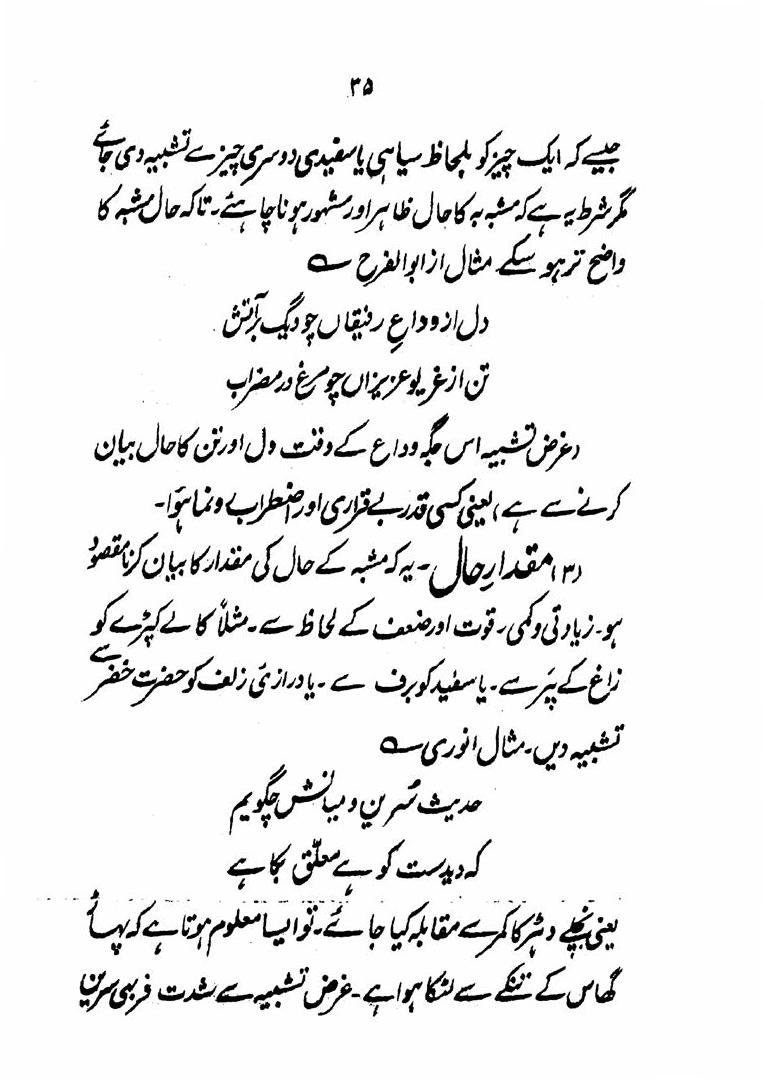 ۳۵
جیسے کہ ایک چیز کو بلحاظ سیاہی یا سفیدی دوسری چیز سے تشبیہ دی جائے
مگر شرط یہ ہے کہ مشبہ بہ کا حال ظاہر اور مشہور ہونا چاہئے۔ تاکہ حال مشبہ کا
واضح تر ہو سکے مثال از ابوالفرح ؎
دل از وداعِ رفیقاں چو دیگ بر آتش
تن از غریو عزیزاں چو مرغ در مضراب
(غرض تشبیہ اس جگہ وداع کے وقت دل اور تن کا حال بیان
کرنے سے ہے) یعنی کسی قدر بے قراری اور اضطراب رونما ہوا۔
(۳) مقدارِ حال۔ یہ کہ مشبہ کے حال کی مقدار کا بیان کرنا مقصود
ہو۔ زیادتی و کمی، قوت اور ضعف کے لحاظ سے۔ مثلاً کالے کپڑے کو
زاغ کے پَر سے۔ یا سفید کو برف سے۔ یا درازیٔ زلف کو حضرت خضر سے
تشبیہ دیں۔ مثال انوری ؎
حدیث سُرین و میانش چگویم
کہ دیدست کوہے معلّق بکاہے
یعنی نچلے دھڑ کا کمر سے مقابلہ کیا جائے۔ تو ایسا معلوم ہوتا ہے کہ پہاڑ
گھاس کے تنکے سے لٹکا ہوا ہے۔ غرض تشبیہ سے شدت فربہی سرین